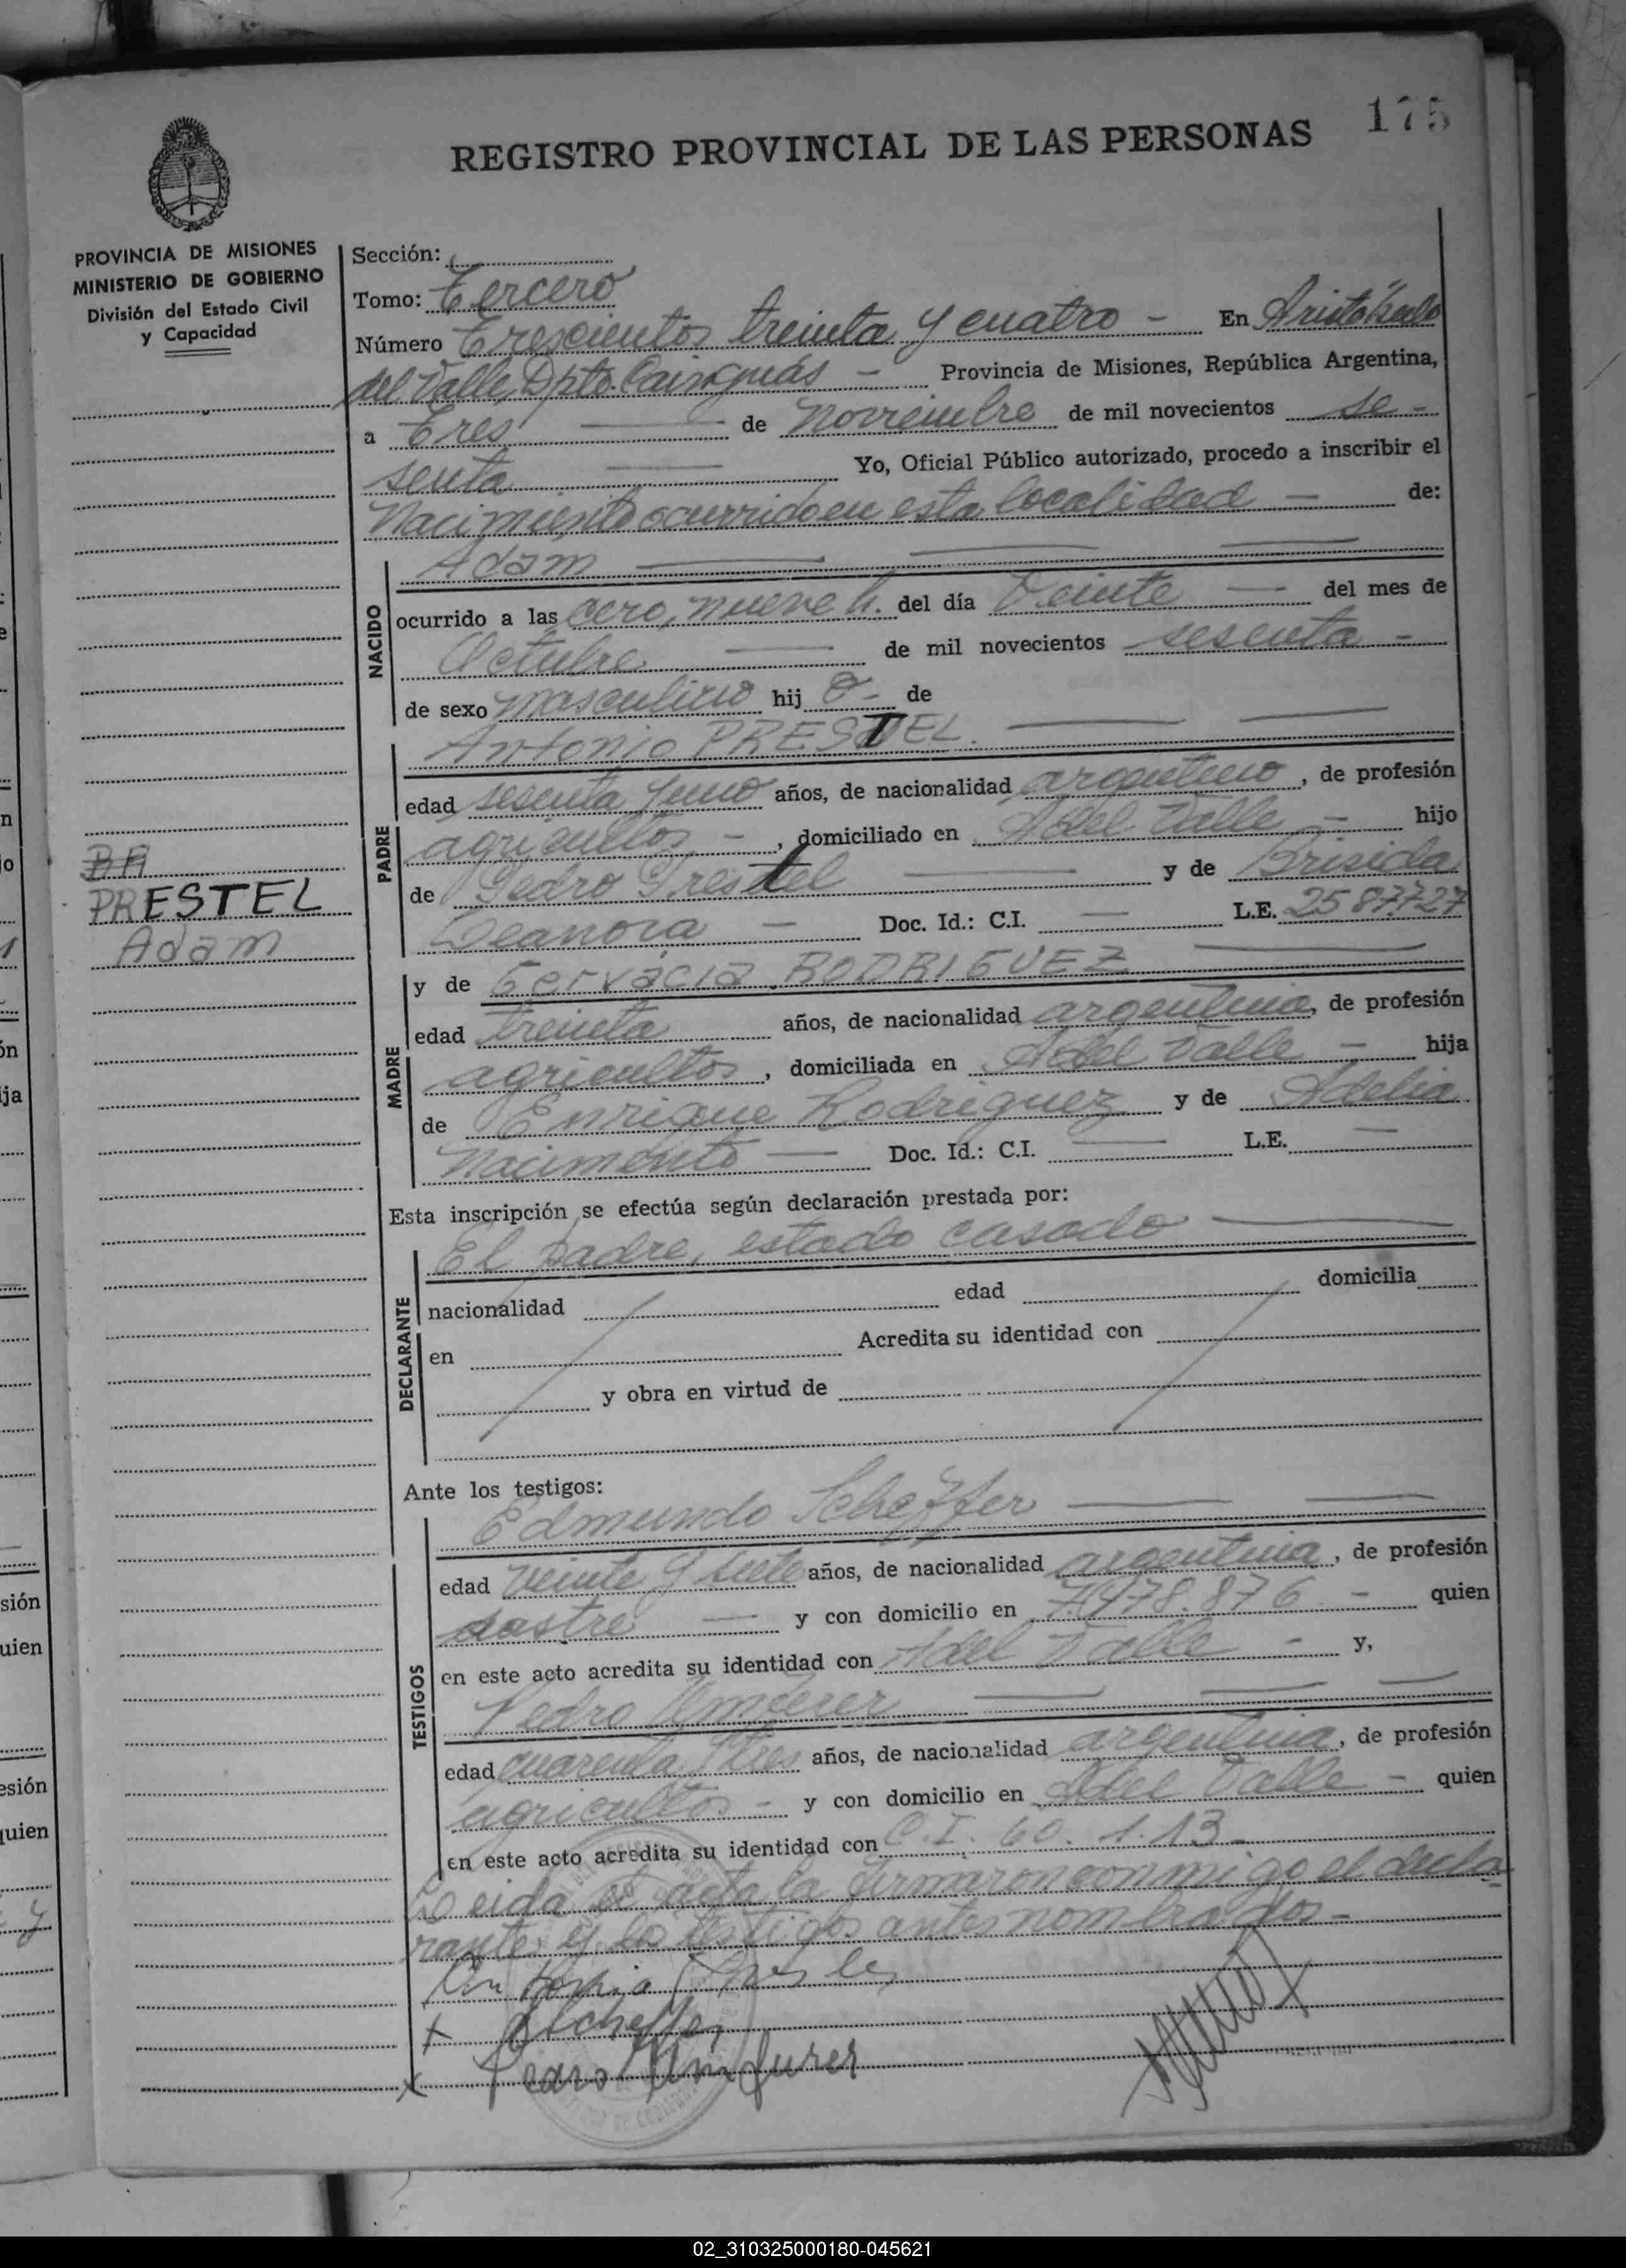 175
REGISTRO PROVINCIAL DE LAS PERSONAS
PROVINCIA DE MISIONES
MINISTERIO DE GOBIERNO
División del Estado Civil
y Capacidad
Sección:
Tomo: Tercero
Número Trescientos treinta y cuatro - En Aristóbulo
del Valle Dpto. Cainguás - Provincia de Misiones, República Argentina,
a Tres de Noviembre de mil novecientos se-
senta Yo, Oficial Público autorizado, procedo a inscribir el
Nacimiento ocurrido en esta localidad - de:
NACIDO
Adam
ocurrido a las cero, nueve h. del día Veinte del mes de
Octubre de mil novecientos sesenta -
de sexo masculino hij o - de
PADRE
Antonio PRESTEL.
edad sesenta y uno años, de nacionalidad argentino, de profesión
agricultor -, domiciliado en A del Valle - hijo
de Pedro Prestel y de Brisida
Doc. Id.: C.I. L.E. 2587727
PRESTEL
Adam
MADRE
y de Gervacia RODRIGUEZ
edad treinta años, de nacionalidad argentina, de profesión
agricultor, domiciliada en A del Valle - hija
de Enrique Rodriguez y de Adelia
Nacimento Doc. Id.: C.I. L.E.
Esta inscripción se efectúa según declaración prestada por:
DECLARANTE
El padre, estado casado
nacionalidad edad domicilia
en Acredita su identidad con
y obra en virtud de
Ante los testigos:
TESTIGOS
Edmundo Scheffer
edad veinte y siete años, de nacionalidad argentina, de profesión
sastre y con domicilio en 7.478.876 - quien
en este acto acredita su identidad con A del Valle - y,
Pedro
edad cuarenta tres años, de nacionalidad argentina, de profesión
agricultor - y con domicilio en A del Valle - quien
en este acto acredita su identidad con C.I. 60.1.13
Leida el acta la firmaron conmigo el decla
rante y los testigos antes nombrados -
Scheffer
Pedro
02_310325000180-045621